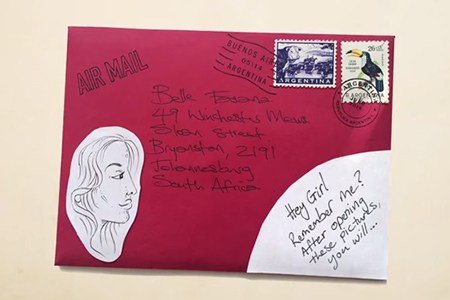 AIR MAIL
BUENOS AIRES
ARGENTINA
ARGENTINA
ARGENTINA
49 Winchester Mews
Street
Bryanston, 2191
Johannesburg
South Africa
Hey Girl
Remember me?
After opening
these pictures,
you will...